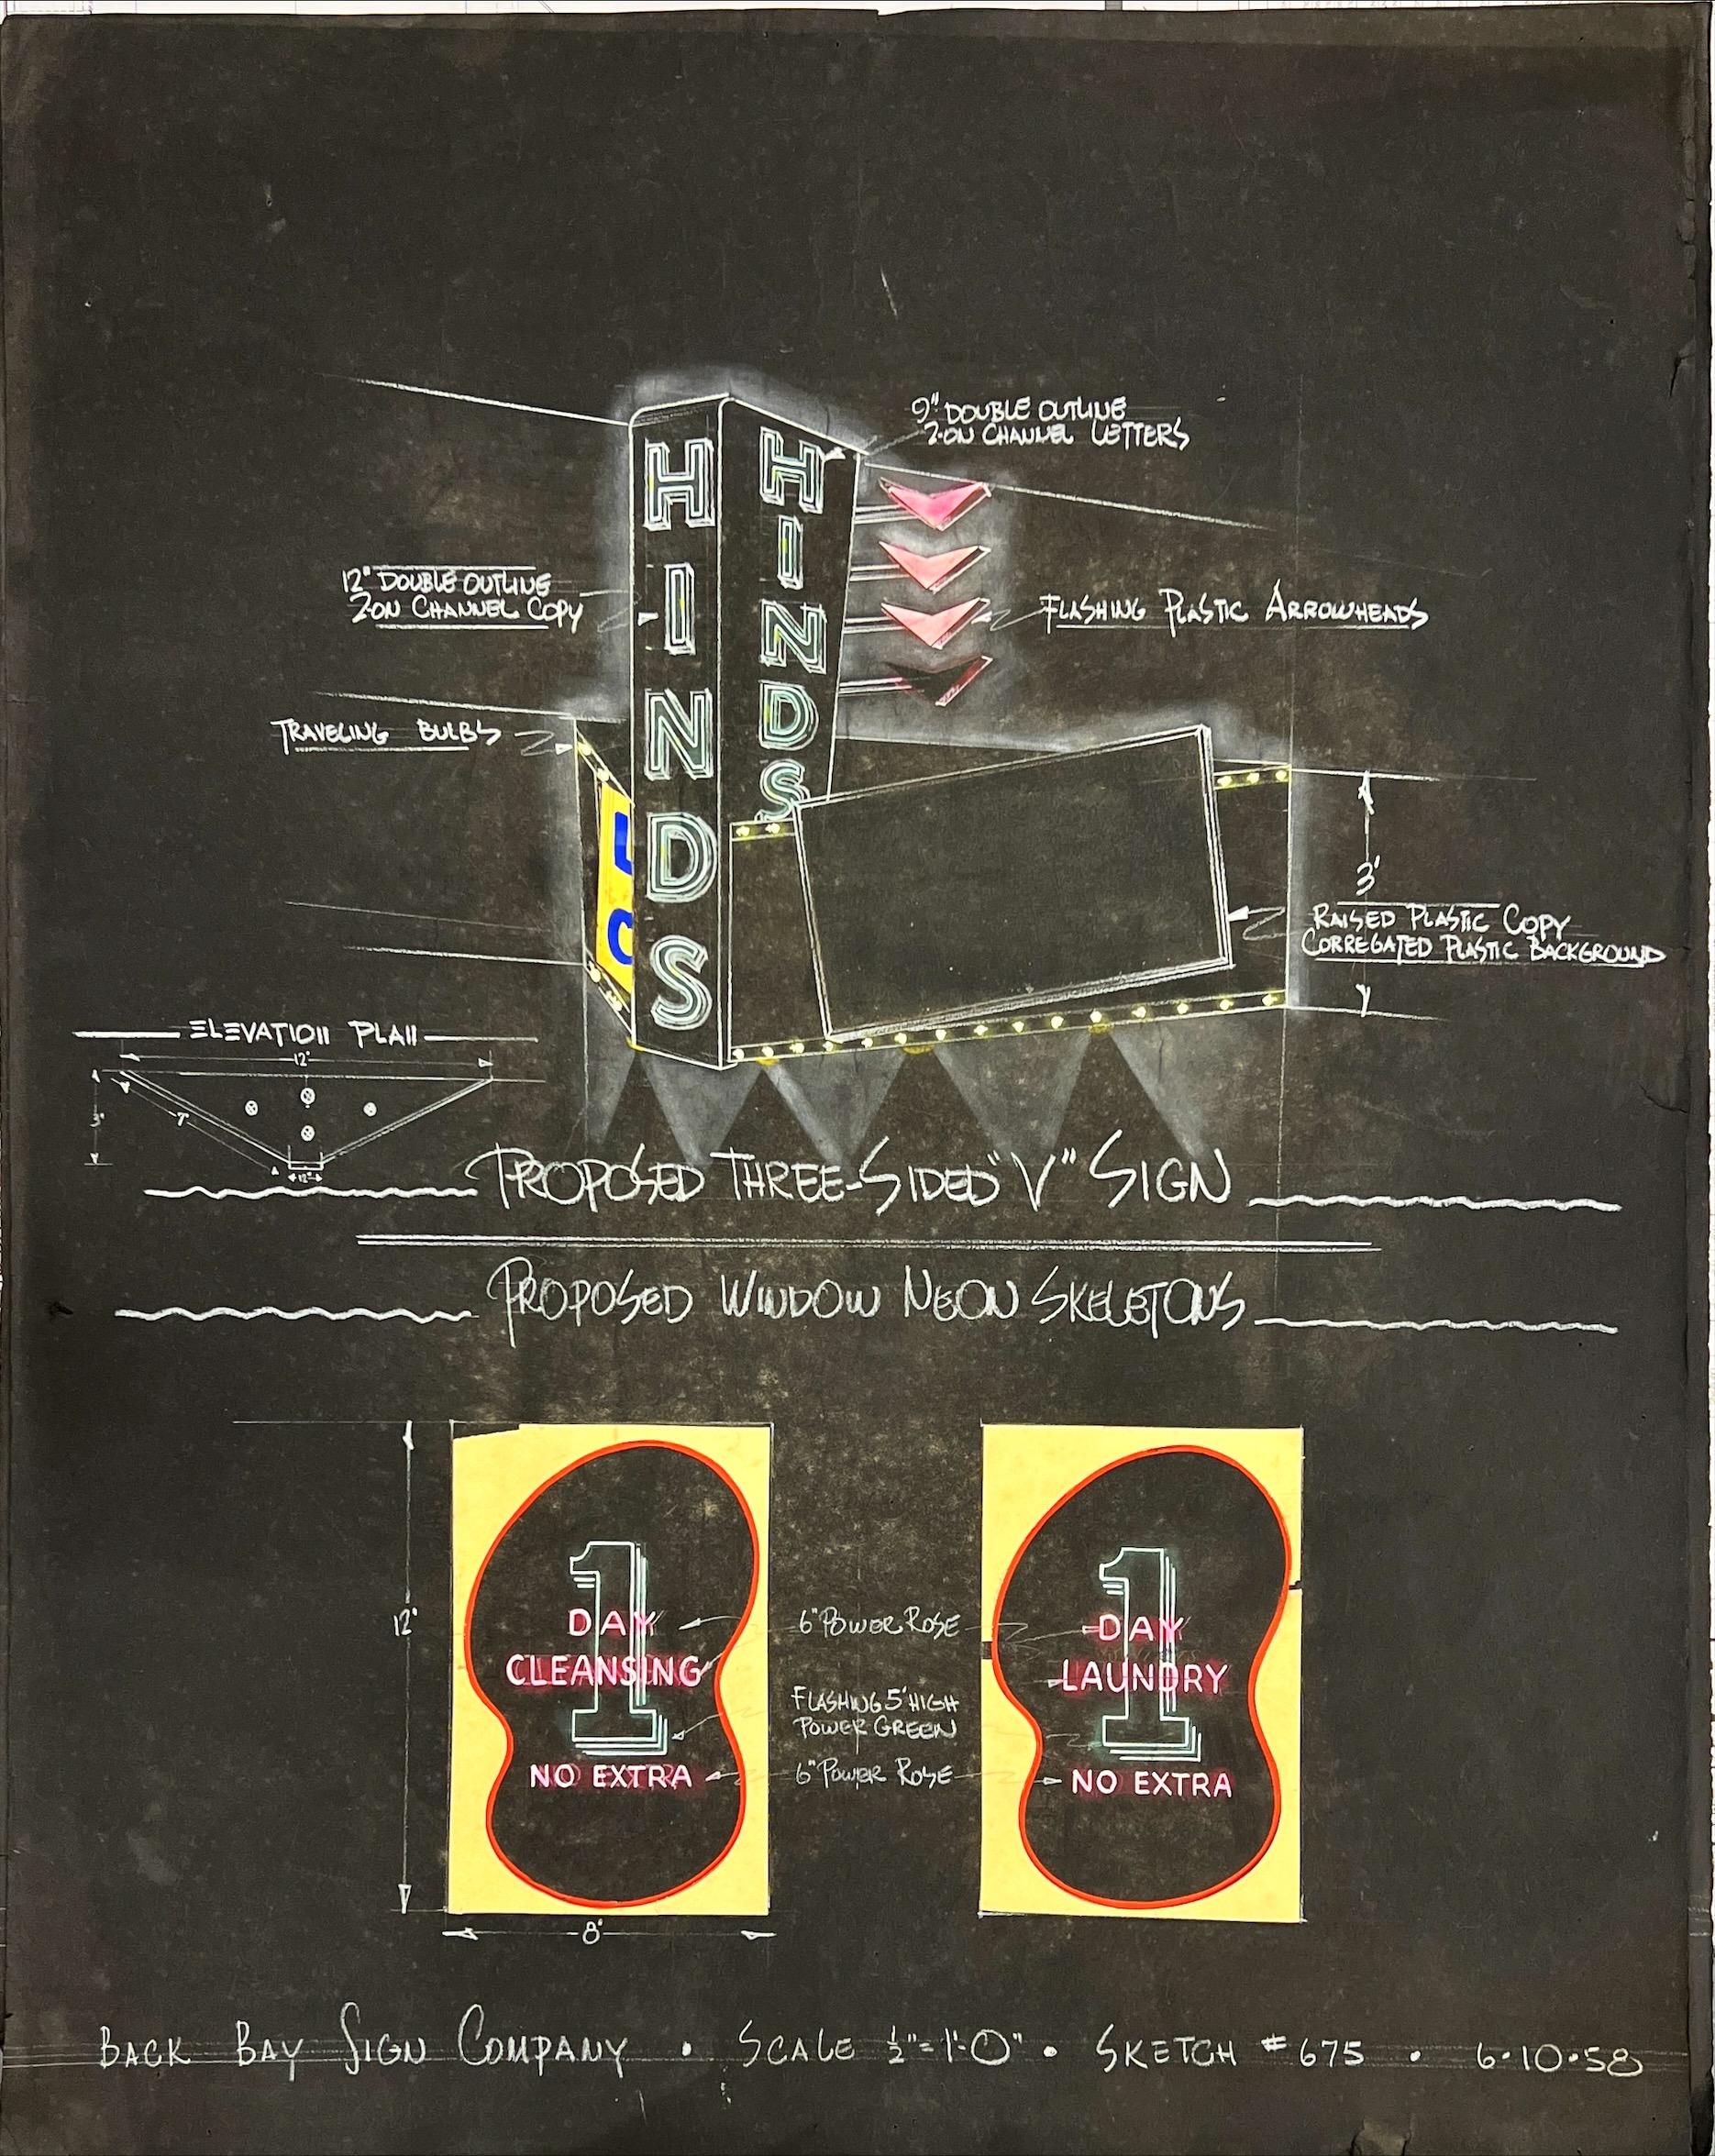 9" DOUBLE OUTLINE
2-ON CHANNEL LETTERS
HINDS
HINDS
12" DOUBLE OUTLINE
2-ON CHANNEL COPY
FLASHING PLASTIC ARROWHEADS
TRAVELING BULBS
L
C
3'
RAISED PLASTIC COPY
CORREGATED PLASTIC BACKGROUND
ELEVATION PLAN
12'
3'
7'
12"
PROPOSED THREE-SIDED "V" SIGN
PROPOSED WINDOW NEON SKELETONS
12'
8'
1
DAY
CLEANSING
NO EXTRA
6" POWER ROSE
FLASHING 5' HIGH
POWER GREEN
6" POWER ROSE
1
DAY
LAUNDRY
NO EXTRA
BACK BAY SIGN COMPANY • SCALE ½"=1'-0" • SKETCH #675 • 6•10•58